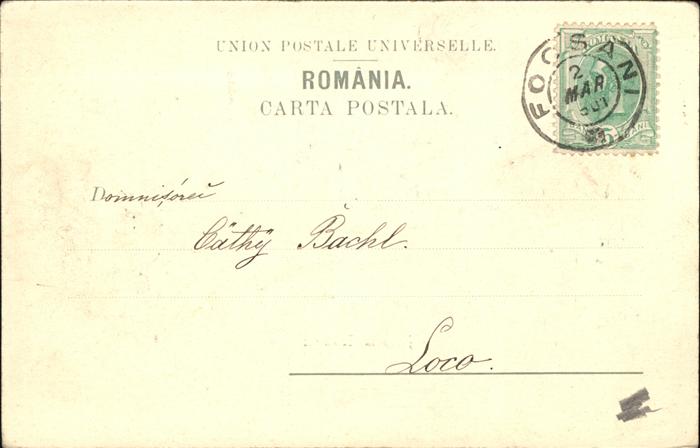 UNION POSTALE UNIVERSELLE.
ROMÂNIA.
CARTA POSTALA.
FOCSANI
2
MAR
901
Domnișórei
Cäthy Bachl.
Loco.